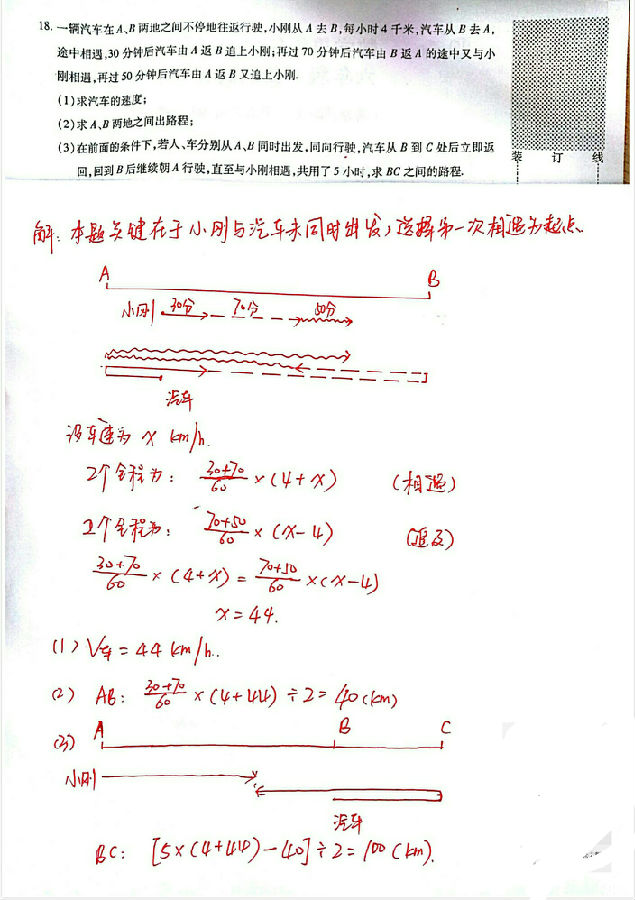 18. 一辆汽车在A、B两地之间不停地往返行驶,小刚从A去B,每小时4千米,汽车从B去A,
途中相遇,30分钟后汽车由A返B追上小刚;再过70分钟后汽车由B返A的途中又与小
刚相遇,再过50分钟后汽车由A返B又追上小刚.
(1)求汽车的速度;
(2)求A、B两地之间出路程;
(3)在前面的条件下,若人、车分别从A、B同时出发,同向行驶,汽车从B到C处后立即返
回,回到B后继续朝A行驶,直至与小刚相遇,共用了5小时,求BC之间的路程.
装 订 线
解:本题关键在于小刚与汽车未同时出发,选择第一次相遇为起点.
A B
小刚 30分 70分 50分
汽车
设车速为 x km/h.
2个全程为: (30+70)/60 ×(4+x) (相遇)
2个全程为: (70+50)/60 ×(x-4) (追及)
(30+70)/60 ×(4+x) = (70+50)/60 ×(x-4)
x=44.
(1) V车 = 44 km/h.
(2) AB: (30+70)/60 ×(4+44)÷2=40(km)
(3) A B C
小刚
汽车
BC: [5×(4+44)-40]÷2=100(km).